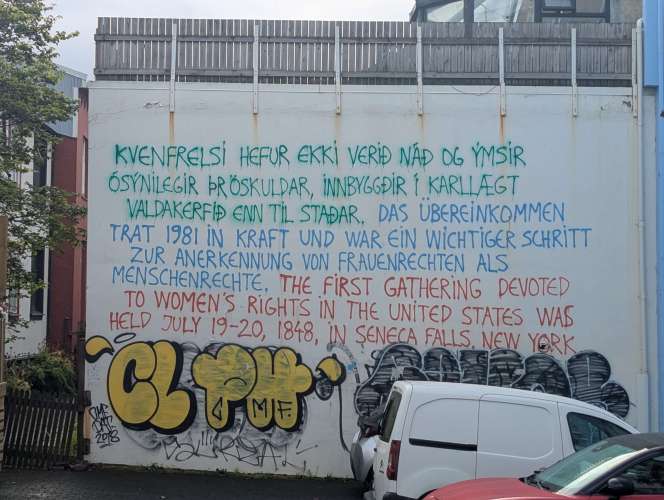 KVENFRELSI HEFUR EKKI VERIÐ NÁÐ OG ÝMSIR
ÓSÝNILEGIR ÞRÖSKULDAR, INNBYGGÐIR Í KARLLÆGT
VALDAKERFIÐ ENN TIL STAÐAR. DAS ÜBEREINKOMMEN
TRAT 1981 IN KRAFT UND WAR EIN WICHTIGER SCHRITT
ZUR ANERKENNUNG VON FRAUENRECHTEN ALS
MENSCHENRECHTE. THE FIRST GATHERING DEVOTED
TO WOMEN'S RIGHTS IN THE UNITED STATES WAS
HELD JULY 19-20, 1848, IN SENECA FALLS, NEW YORK
CL
MF.
2018